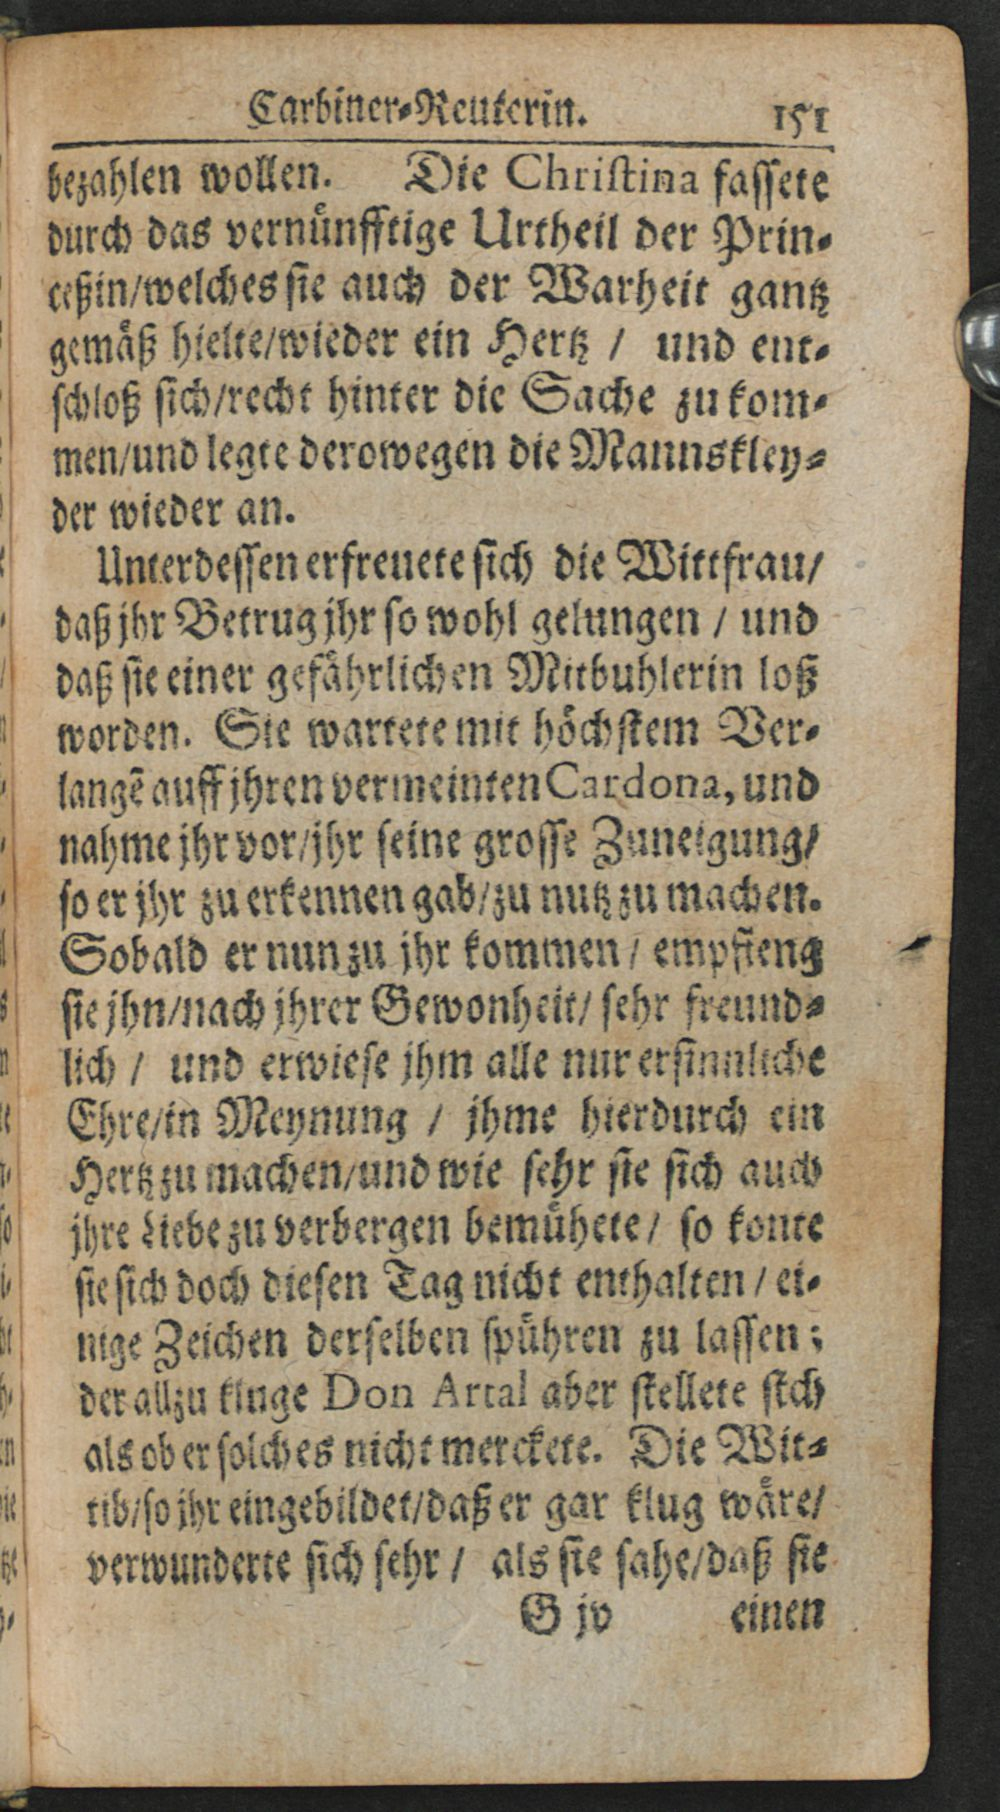 Carbiner-Reuterin. 151
bezahlen wollen. Die Christina fassete
durch das vernünfftige Urtheil der Prin-
ceßin/welches sie auch der Warheit gantz
gemäß hielte/wieder ein Hertz / und ent-
schloß sich/recht hinter die Sache zu kom-
men/und legte derowegen die Mannskley-
der wieder an.
Unterdessen erfreuete sich die Wittfrau/
daß jhr Betrug jhr so wohl gelungen / und
daß sie einer gefährlichen Mitbuhlerin loß
worden. Sie wartete mit höchstem Ver-
langē auff jhren vermeinten Cardona, und
nahme jhr vor/jhr seine grosse Zuneigung/
so er jhr zu erkennen gab/zu nutz zu machen.
Sobald er nun zu jhr kommen / empfieng
sie jhn/nach jhrer Gewonheit/ sehr freund-
lich / und erwiese jhm alle nur ersinnliche
Ehre/in Meynung / jhme hierdurch ein
Hertz zu machen/und wie sehr sie sich auch
jhre Liebe zu verbergen bemühete/ so konte
sie sich doch diesen Tag nicht enthalten / ei-
nige Zeichen derselben spühren zu lassen;
der allzu kluge Don Artal aber stellete sich
als ob er solches nicht merckete. Die Wit-
tib/so jhr eingebildet/daß er gar klug wäre/
verwunderte sich sehr / als sie sahe/daß sie
G jv einen